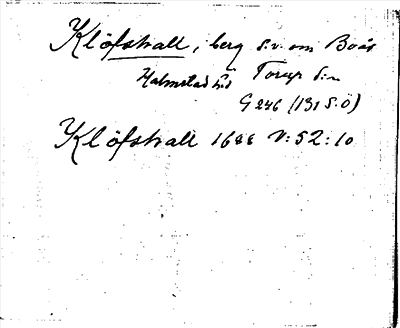 Klöfshall, berg s.v. om Boås
Halmstad hd Torup s:n
G 246 (131 S.Ö)
Klöfshall 1688 V:52:10